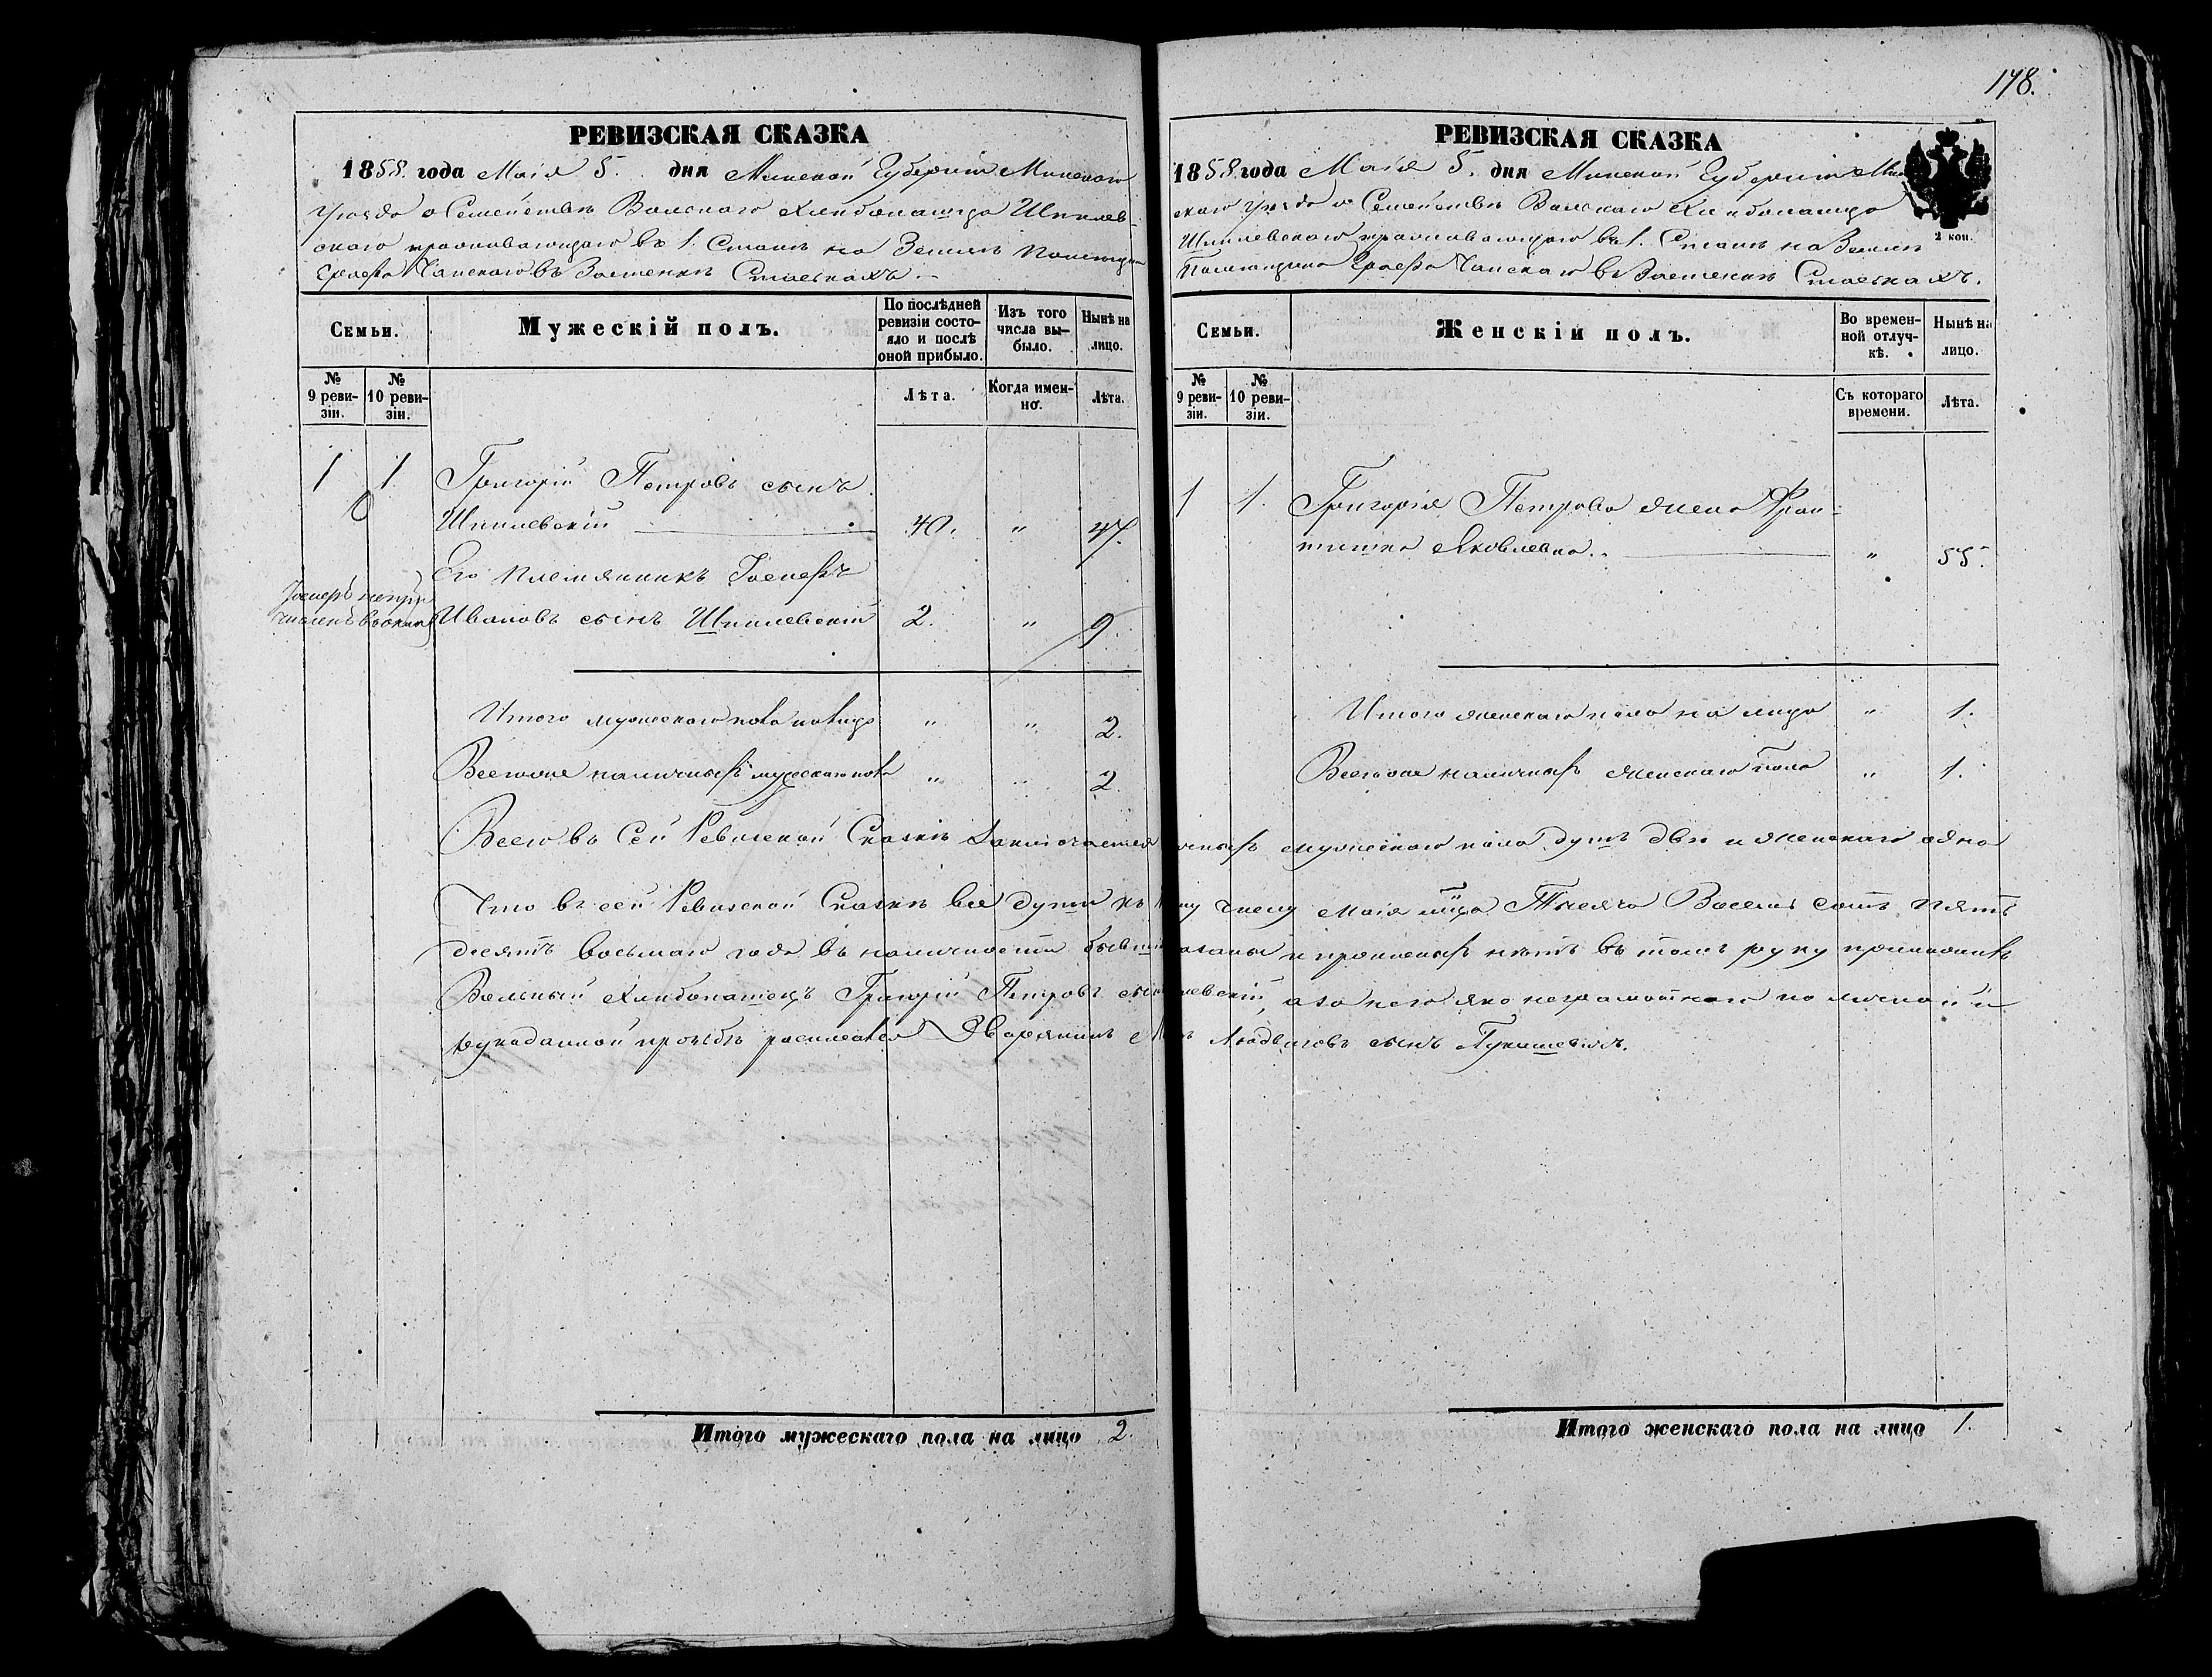 178.
РЕВИЗСКАЯ СКАЗКА
1858. года Маія 5. дня Минской Губерніи Минскаго
Уѣзда о Семействѣ Вольнаго Хлѣбопашца Шпилев-
скаго проживающаго въ 1. Станѣ на Землѣ помѣщика
Графа Чапскаго въ Застенкѣ Стаськахъ.
Семьи.
Мужескій полъ.
По послѣдней ревизіи состояло и послѣ оной прибыло.
Изъ того числа выбыло.
Нынѣ на лицо.
№ 9 ревизіи.
№ 10 ревизіи.
Лѣта.
Когда именно.
Лѣта.
1 1. Григорій Петровъ сынъ
Шпилевскій 40. " 47.
Его племянникъ Іосифъ
Іосифъ непри
численъ въ окладъ
Ивановъ сынъ Шпилевскій 2. " 9.
Итого мужескаго пола на лицо " " 2.
Всего же наличныхъ мужескаго пола " " 2.
Всего въ Сей Ревизской Сказкѣ Заключается
Что въ сей Ревизской Сказкѣ все души къ
десятъ восьмаго года въ наличности бывш
Вольный Хлѣбопашецъ Григорій Петровъ сын
рукоданной прозьбѣ росписался Дворянинъ
Итого мужескаго пола на лицо 2.
РЕВИЗСКАЯ СКАЗКА
2 коп.
1858. года Маія 5. дня Минской Губерніи Мин
скаго Уѣзда о Семействѣ Вольнаго Хлѣбопашца
Шпилевскаго проживающаго въ 1. Станѣ на Землѣ
Помѣщика Графа Чапскаго въ Застенкѣ Стаськахъ.
Семьи.
Женскій полъ.
Во временной отлучкѣ.
Нынѣ на лицо.
№ 9 ревизіи.
№ 10 ревизіи.
Съ котораго времени.
Лѣта.
1 1. Григорія Петрова жена Фран-
тишка Яковлевна. " 55.
Итого женскаго пола на лицо " 1.
Всего же наличныхъ женскаго пола " 1.
чныхъ мужескаго пола душъ двѣ и женскаго одна
му числу Маія мца Тысяча Восемь сотъ пять
азаны и прописныхъ нѣтъ въ томъ руку приложилъ
левскій, а за него яко неграмотнаго по личной и
Людвиговъ сынъ Лукашевичъ.
Итого женскаго пола на лицо 1.